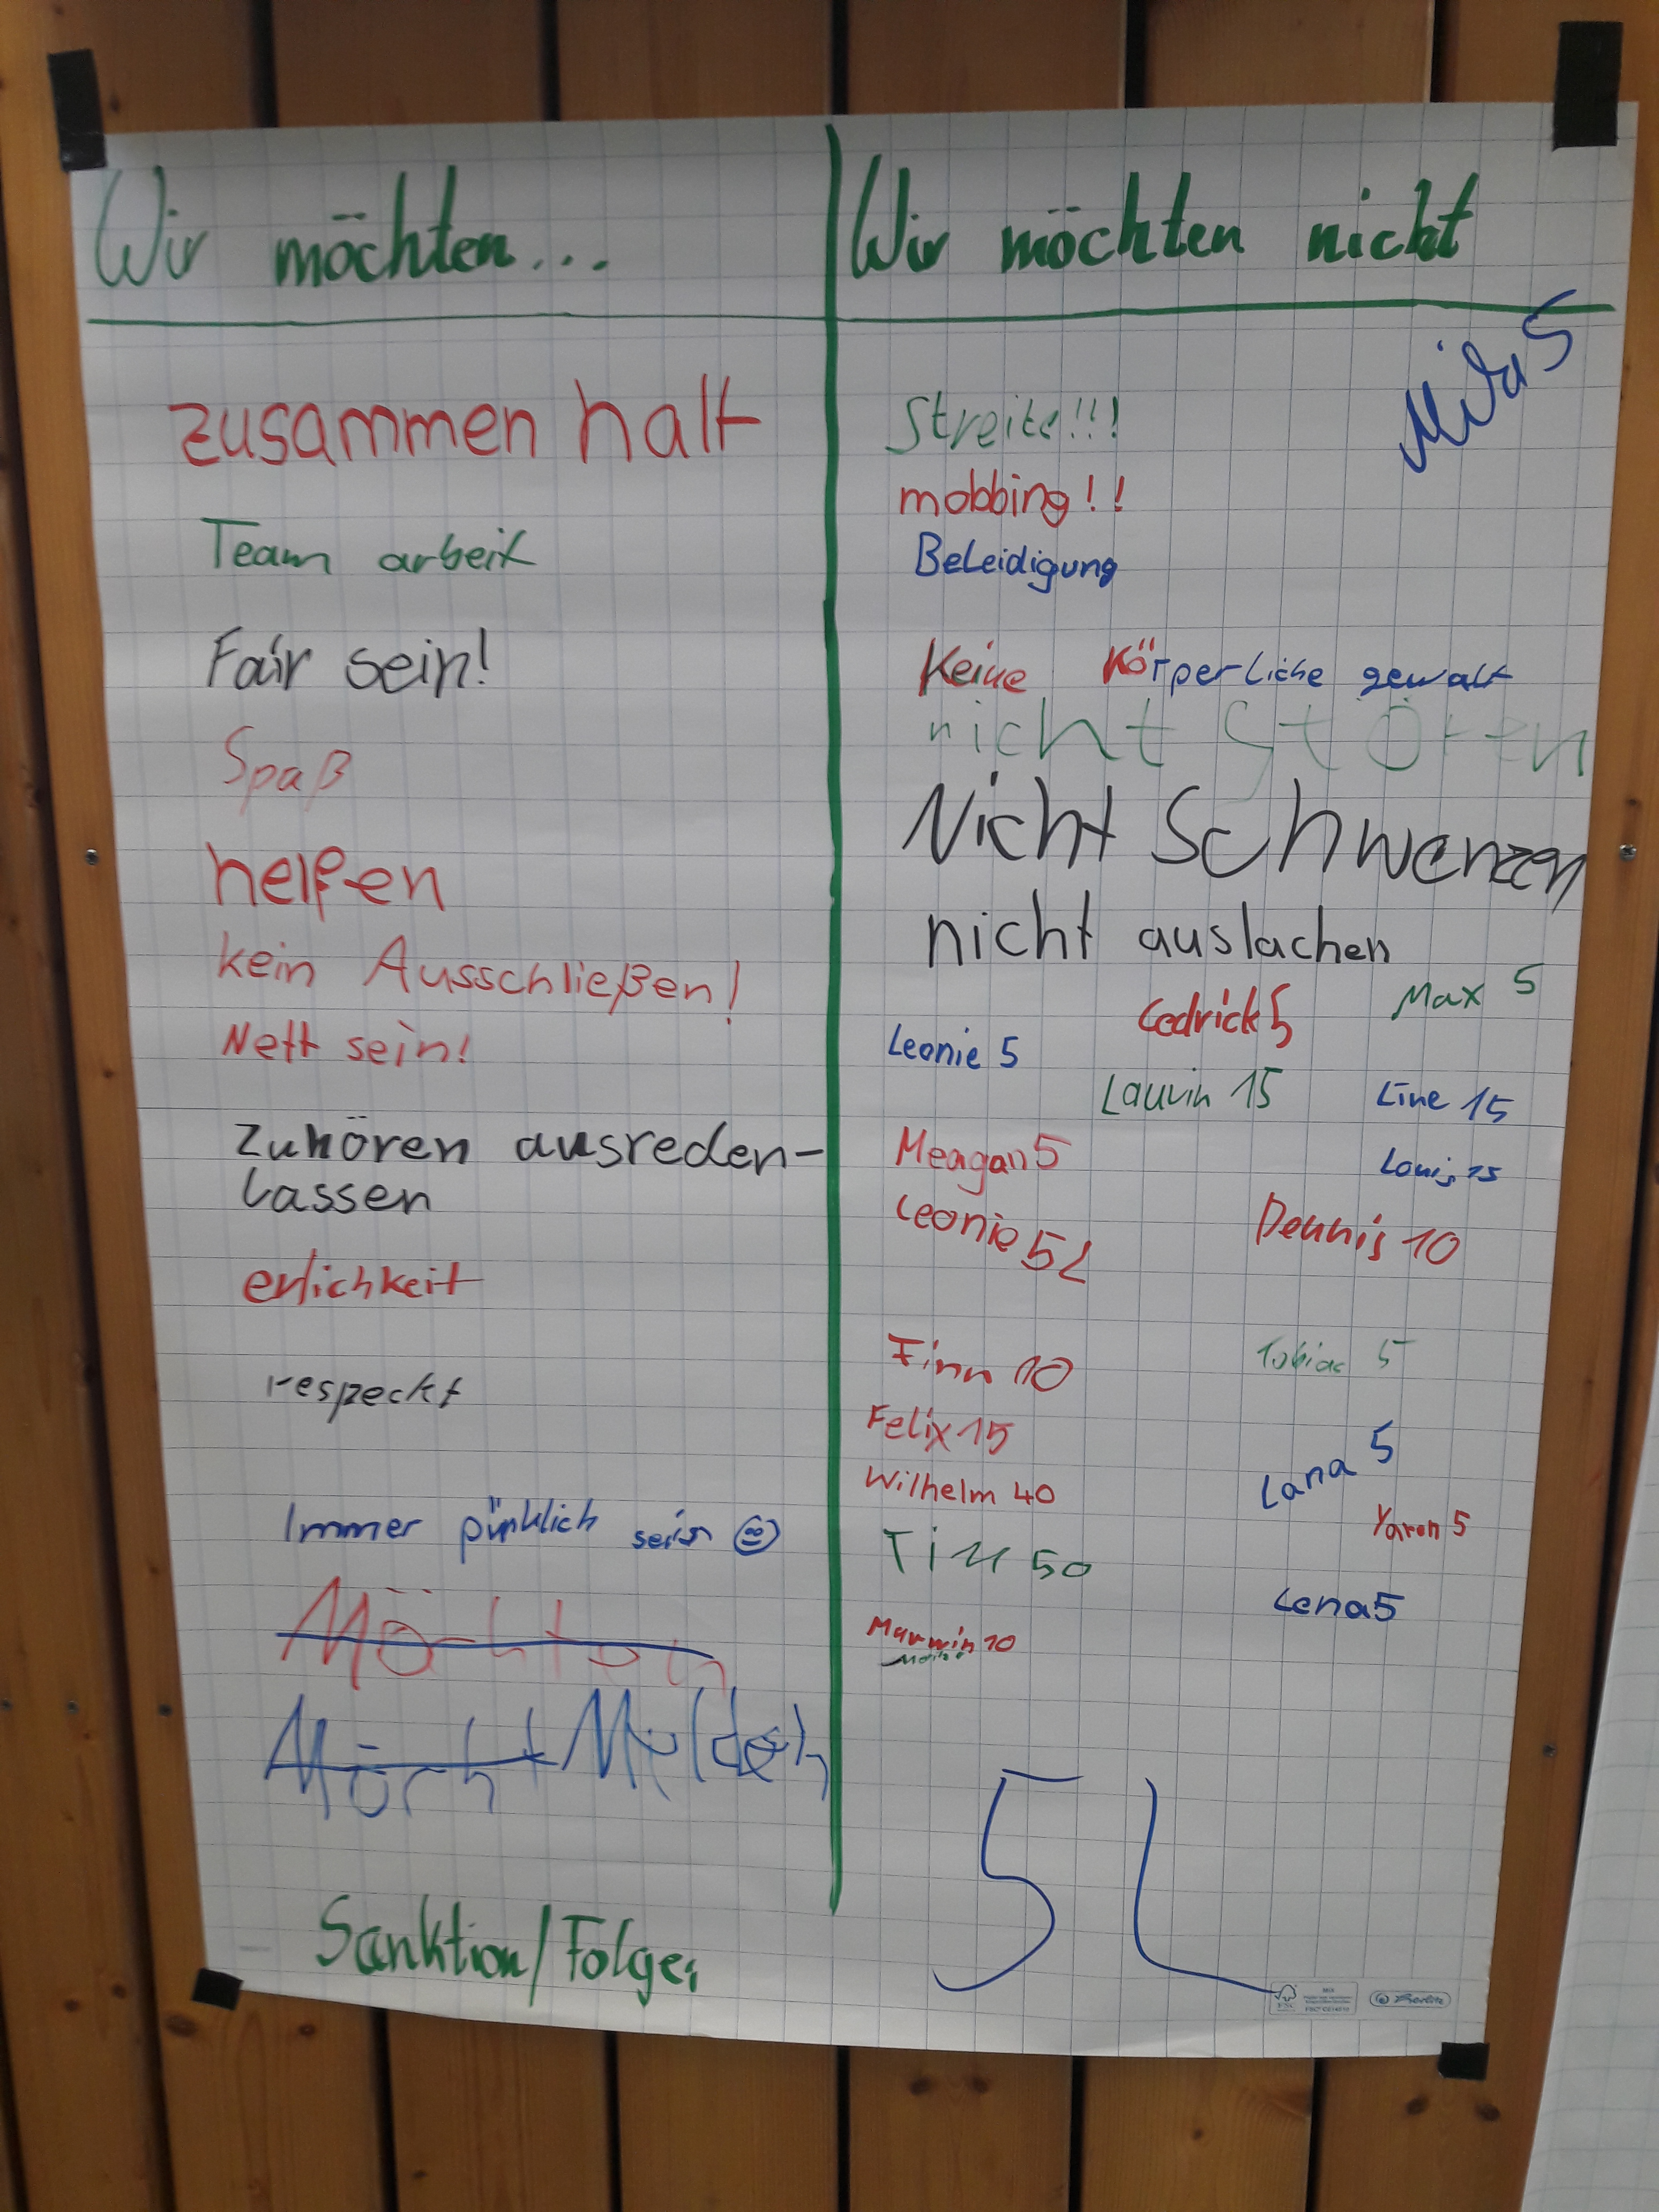 Wir möchten...
zusammen halt
Team arbeit
Fair sein!
Spaß
helfen
kein Ausschließen!
Nett sein!
Zuhören ausreden-
lassen
erlichkeit
respeckt
Immer pünklich sein
Melden
Sanktion/Folge:
Wir möchten nicht
Streite!!!
mobbing!!
Beleidigung
Keine Körperliche gewalt
nicht Stören
Nicht Schwenzen
nicht auslachen
Cedrick 5
Max 5
Leonie 5
Lauvin 15
Line 15
Meagan 5
Louis 15
Leonie 5L
Dennis 10
Finn 10
Tobias 5
Felix 15
Lana 5
Wilhelm 40
Yaron 5
50
Lena 5
Marwin 10
5L